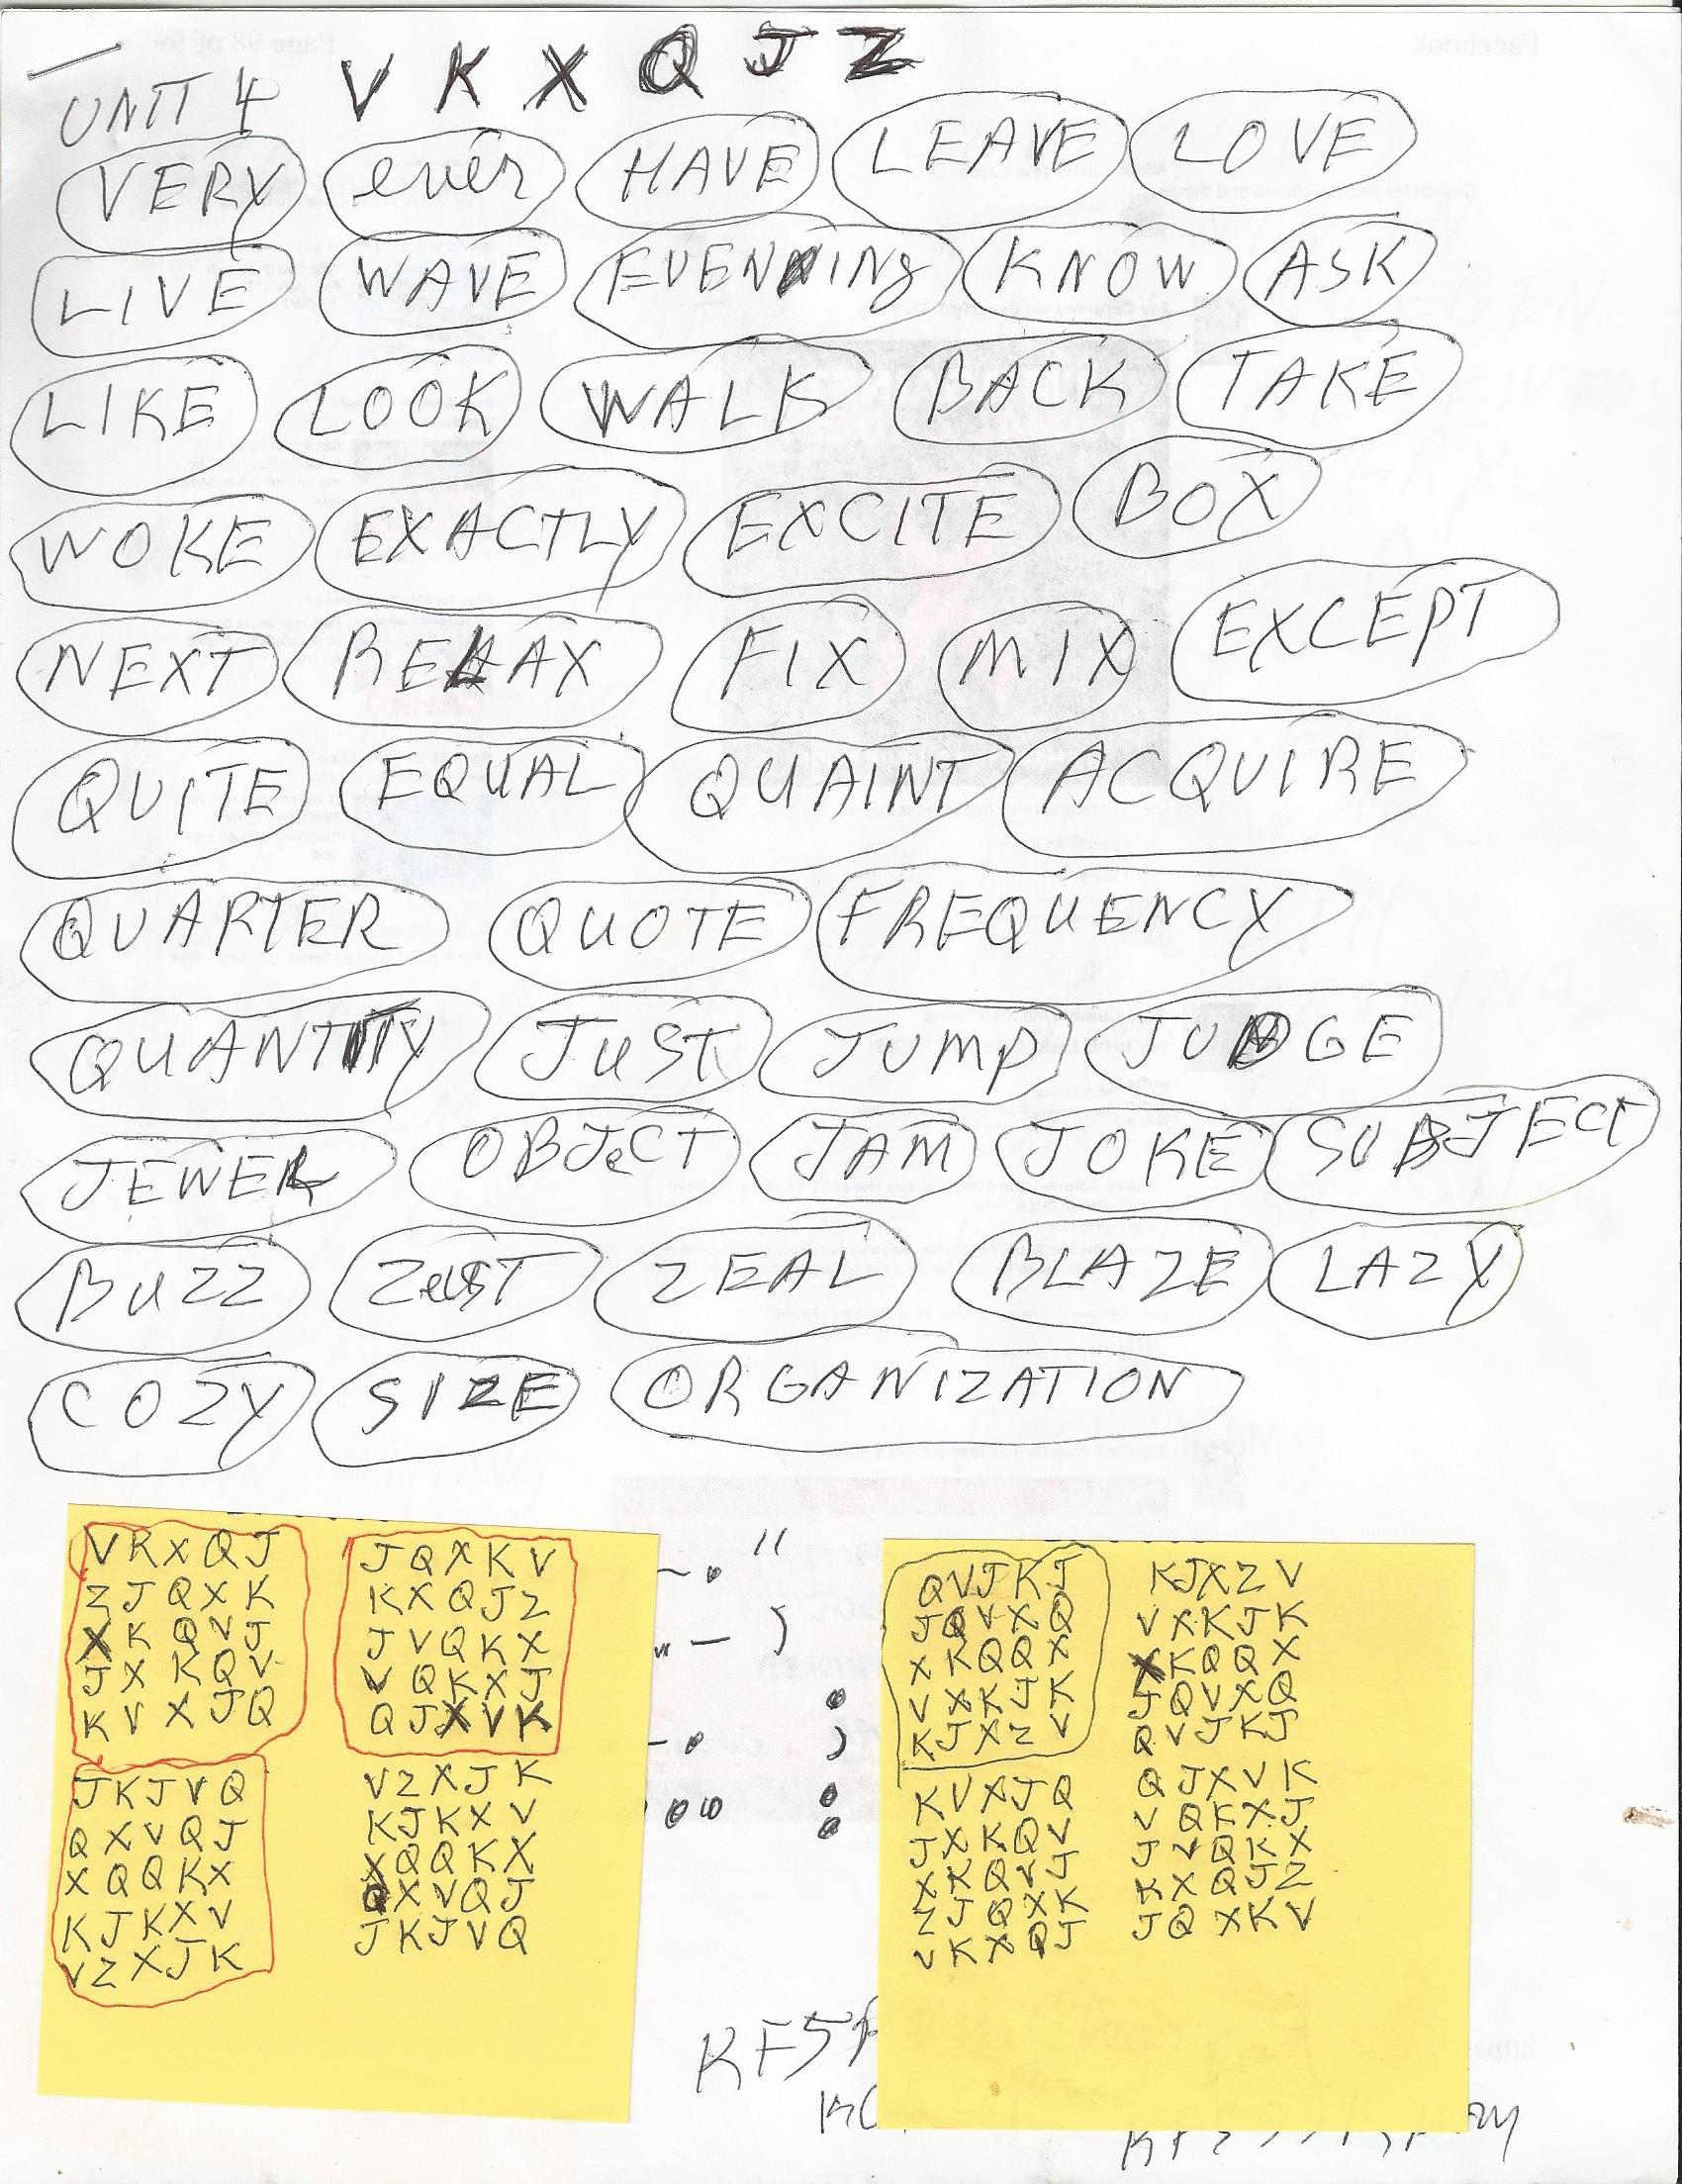 UNIT 4 V K X Q J Z
VERY ever HAVE LEAVE LOVE
LIVE WAVE EVENING KNOW ASK
LIKE LOOK WALK BACK TAKE
WOKE EXACTLY EXCITE BOX
NEXT RELAX FIX MIX EXCEPT
QUITE EQUAL QUAINT ACQUIRE
QUARTER QUOTE FREQUENCY
QUANTITY JUST JUMP JUDGE
JEWEL OBJeCT JAM JOKE SUBJECT
BUZZ ZeST ZEAL BLAZE LAZY
COZY SIZE ORGANIZATION
V K X Q J
Z J Q X K
X K Q V J
J X K Q V
K V X J Q
J K J V Q
Q X V Q J
X Q Q K X
K J K X V
V Z X J K
J Q X K V
K X Q J Z
J V Q K X
V Q K X J
Q J X V K
V Z X J K
K J K X V
X Q Q K X
Q X V Q J
J K J V Q
Q V J K J
J Q V X Q
X K Q Q X
V X K J K
K J X Z V
K V X J Q
J X K Q V
X K Q V J
Z J Q X K
V K X Q J
K J X Z V
V X K J K
X K Q Q X
J Q V X Q
Q V J K J
Q J X V K
V Q K X J
J V Q K X
K X Q J Z
J Q X K V
KF5